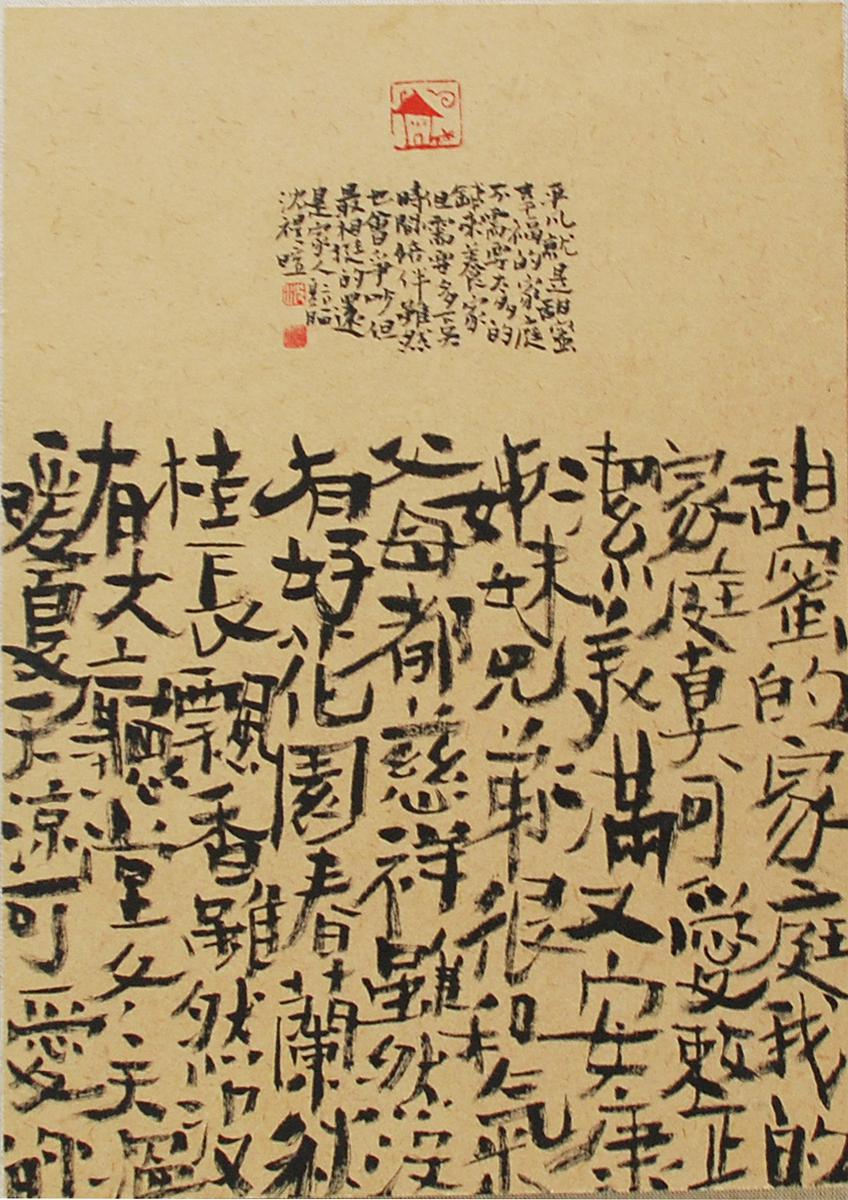 平凡就是甜蜜
幸福的家庭
不需要太多的
錢來養家
但需要多
時間陪伴雖然
也會爭吵但
最相挺的還
是家人
沈
甜蜜的家庭我的
家庭真可愛整
潔美滿又安康
姊妹兄弟很和氣
父母都慈祥雖然沒
有好花園春蘭秋
桂長飄香雖然沒
有大廳堂冬天溫
暖夏天涼可愛